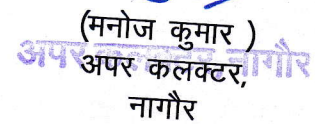 (मनोज कुमार )
अपर कलक्टर नागौर
अपर कलक्टर,
नागौर